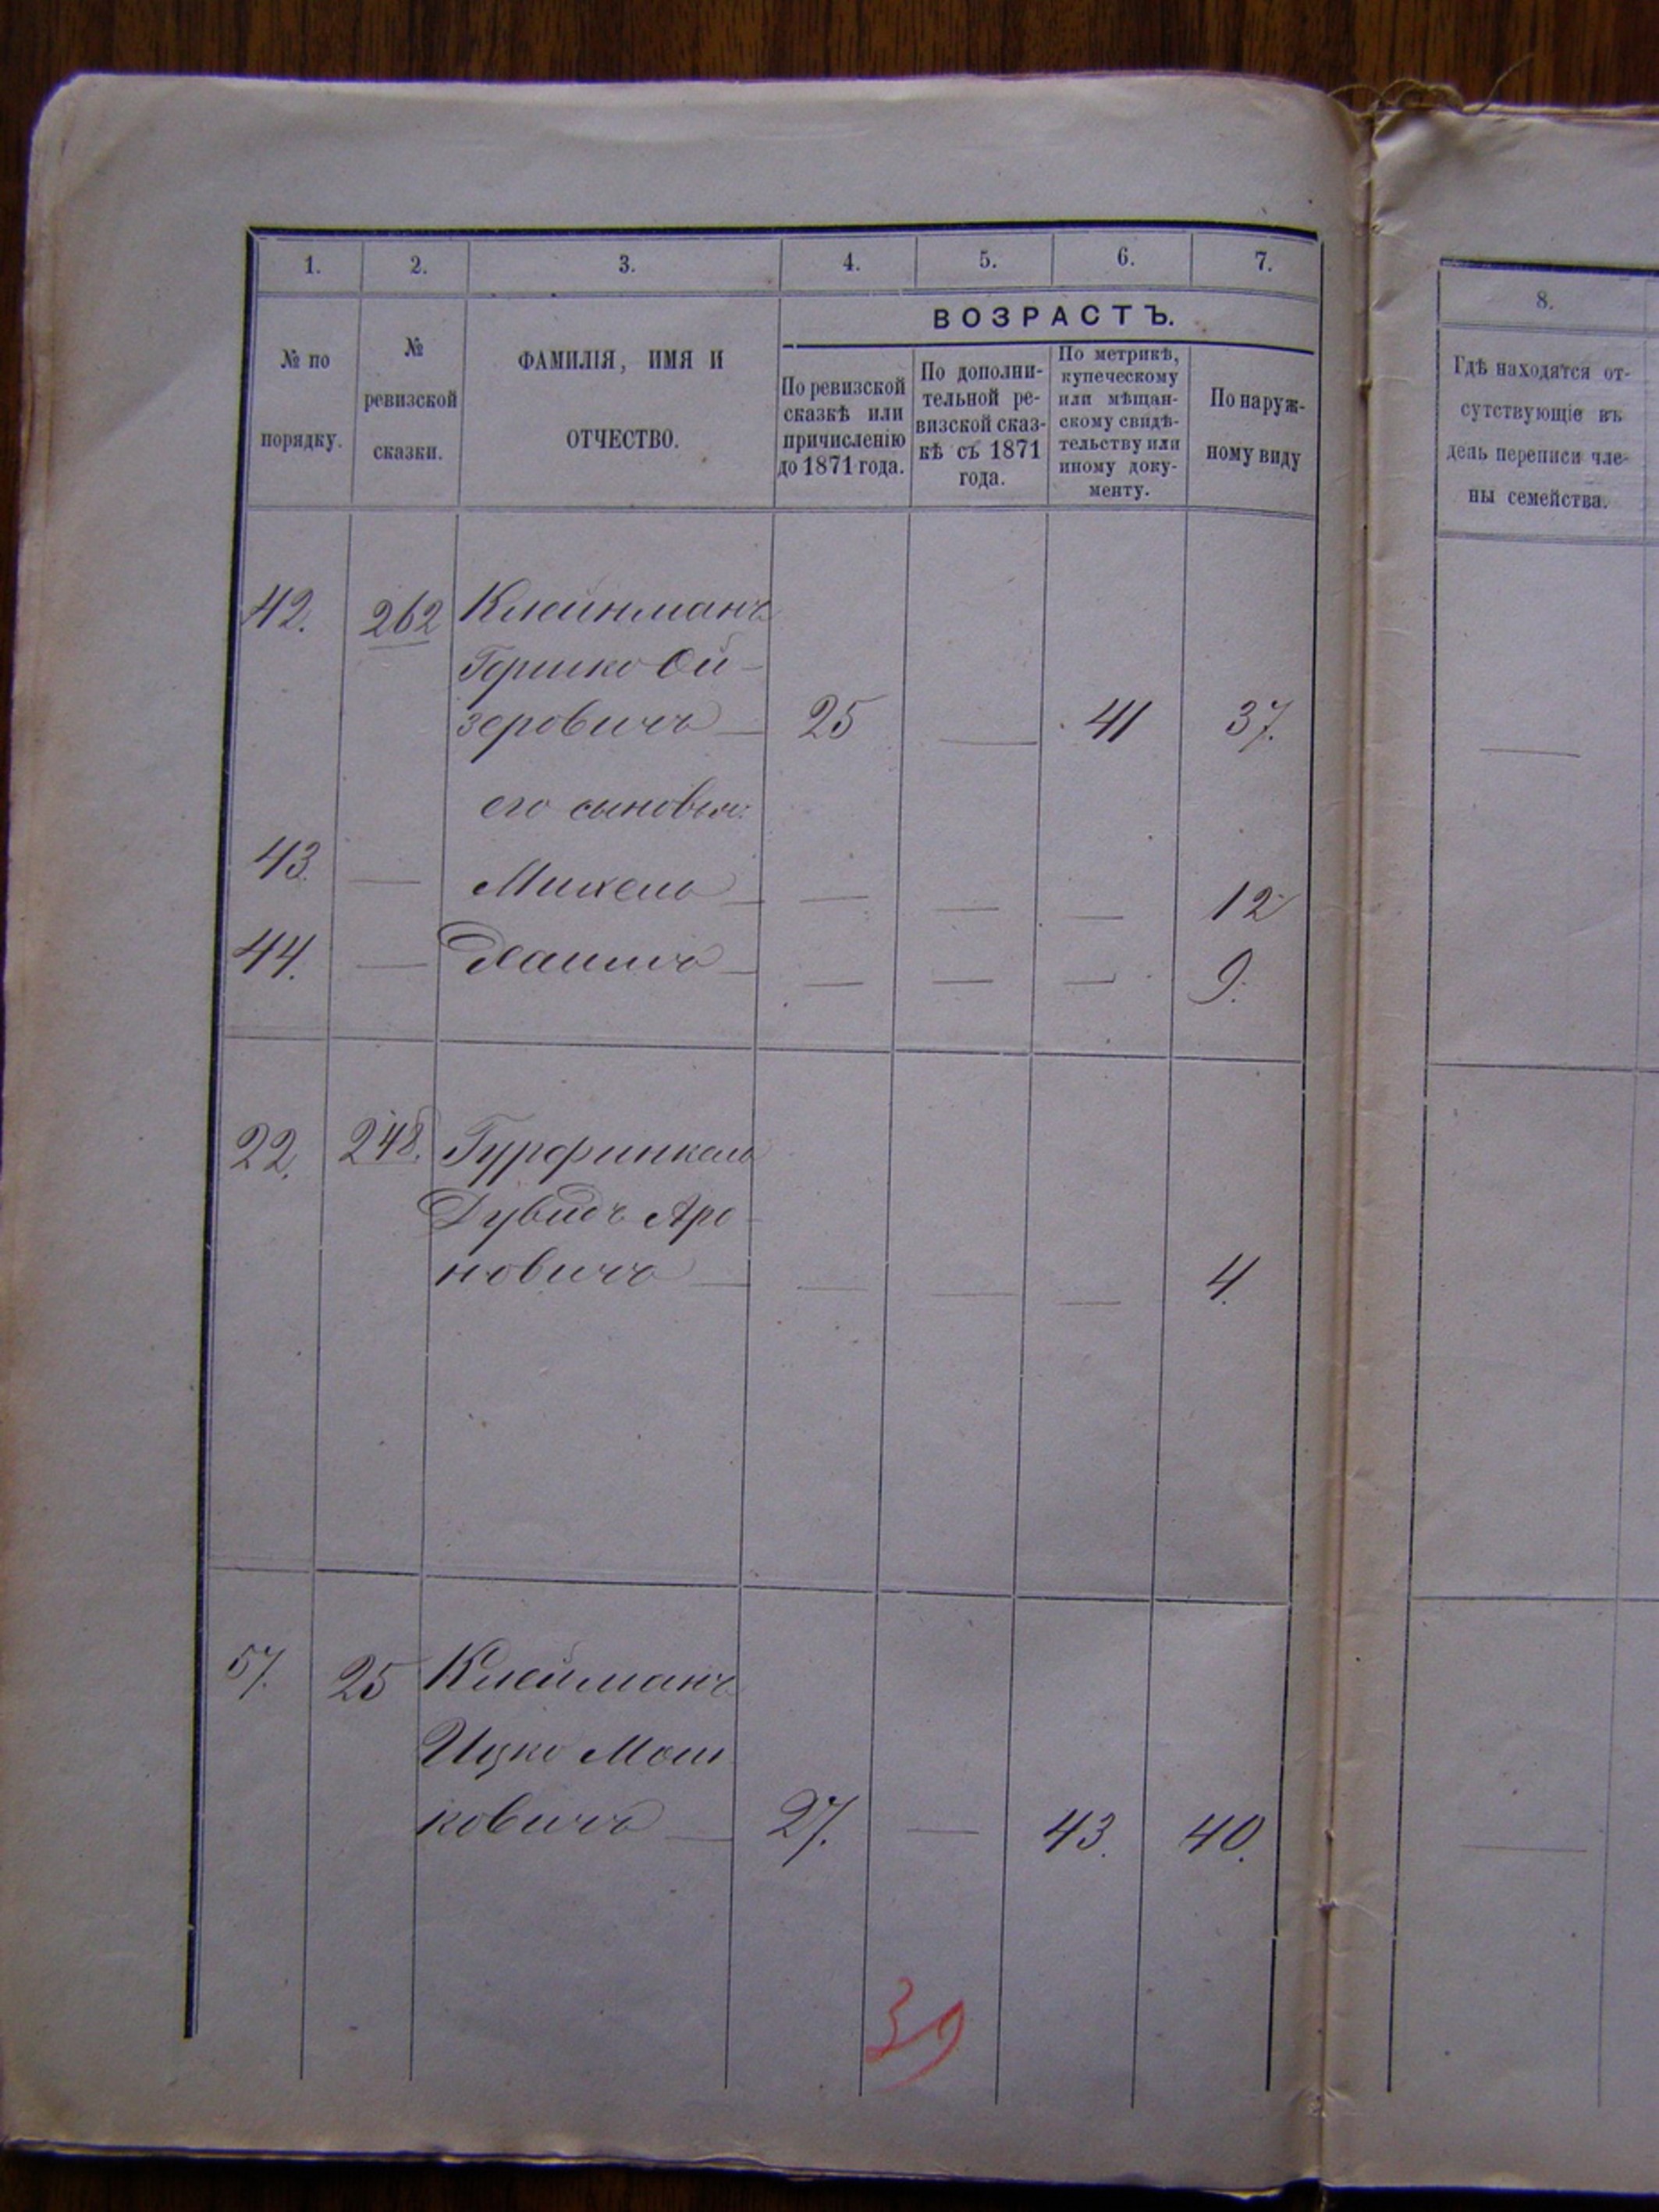 1. 2. 3. 4. 5. 6. 7.
8.
ВОЗРАСТЪ.
№ по
порядку.
№
ревизской
сказки.
ФАМИЛІЯ, ИМЯ И
ОТЧЕСТВО.
По ревизской
сказкѣ или
причисленію
до 1871 года.
По дополни-
тельной ре-
визской сказ-
кѣ съ 1871
года.
По метрикѣ,
купеческому
или мѣщан-
скому свидѣ-
тельству или
иному доку-
менту.
По наруж-
ному виду
Гдѣ находятся от-
сутствующіе въ
день переписи чле-
ны семейства.
42. 262 Клейнманъ
Гершко Ой-
зеровичъ — 25 — 41 37.
его сыновья:
43. — Михель — — — — 12
44. — — — — — 9.
22. 248. Гурфинкель
Дувидъ Аро-
новичъ — — — — 4.
57. 25 Клейманъ
Ицко Мош
ковичъ — 27. — 43. 40.
39